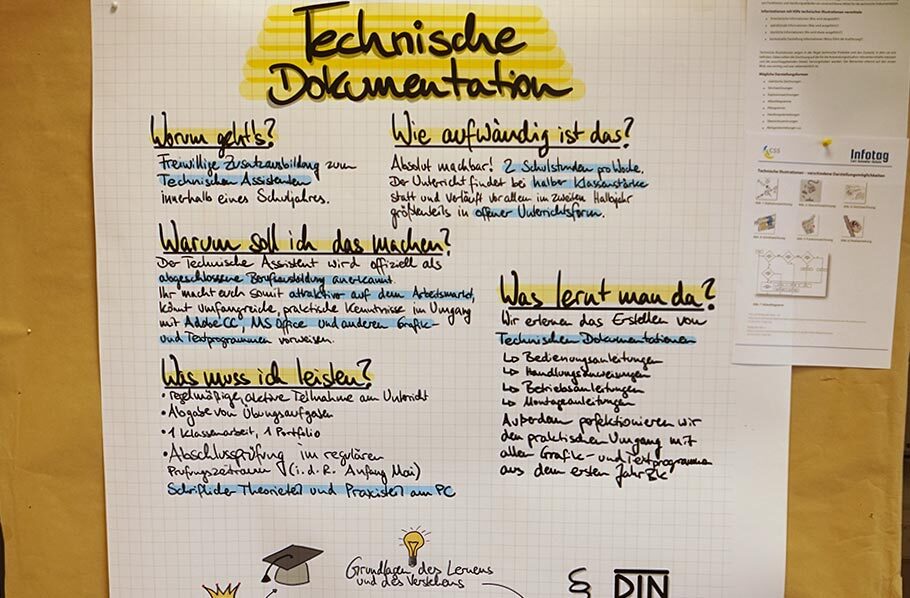 Technische
Dokumentation
Worum geht's?
Freiwillige Zusatzausbildung zum
Technischen Assistenten
innerhalb eines Schuljahres.
Wie aufwändig ist das?
Absolut machbar! 2 Schulstunden pro Woche.
Der Unterricht findet bei halber Klassenstärke
statt und verläuft vor allem im zweiten Halbjahr
größtenteils in offener Unterrichtsform.
Warum soll ich das machen?
Der Technische Assistent wird offiziell als
abgeschlossene Berufsausbildung anerkannt.
Ihr macht euch somit attraktiver auf dem Arbeitsmarkt,
könnt umfangreiche, praktische Kenntnisse im Umgang
mit Adobe CC, MS Office und anderen Grafik-
und Textprogrammen vorweisen.
Was lernt man da?
Wir erlernen das Erstellen von
Technischen Dokumentationen
↳ Bedienungsanleitungen
↳ Handlungsanweisungen
↳ Betriebsanleitungen
↳ Montageanleitungen
Außerdem perfektionieren wir
den praktischen Umgang mit
allen Grafik- und Textprogrammen
aus dem ersten Jahr BK
Was muss ich leisten?
• regelmäßige, aktive Teilnahme am Unterricht
• Abgabe von Übungsaufgaben
• 1 Klassenarbeit, 1 Portfolio
• Abschlussprüfung im regulären
Prüfungszeitraum (i. d. R. Anfang Mai)
Schriftlicher Theorieteil und Praxisteil am PC
Grundlagen des Lernens
und des Verstehens
§ DIN
Informationen mit Hilfe technischer Illustrationen vermitteln
Mögliche Darstellungsformen
CSS
Infotag
Technische Illustrationen - verschiedene Darstellungsmöglichkeiten